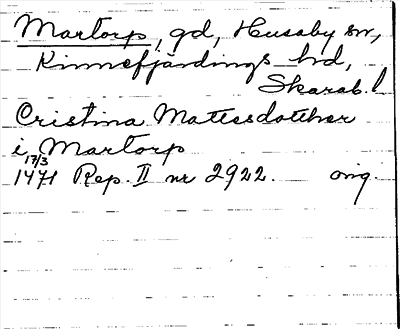 Martorp, gd, Husaby sn,
Kinnefjärdings hd,
Skarab. l
Cristina Mattesdotther
i Martorp
17/3
1471 Rep. II nr 2922. orig.